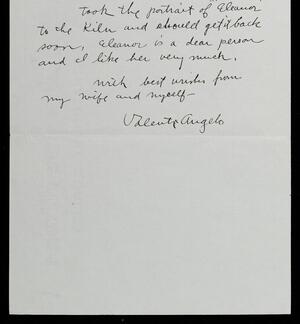 took the portrait of Eleanor
to the Kiln and should get it back
soon, Eleanor is a dear person
and I like her very much.
with best wishes from
my wife and myself—
Valenti Angelo